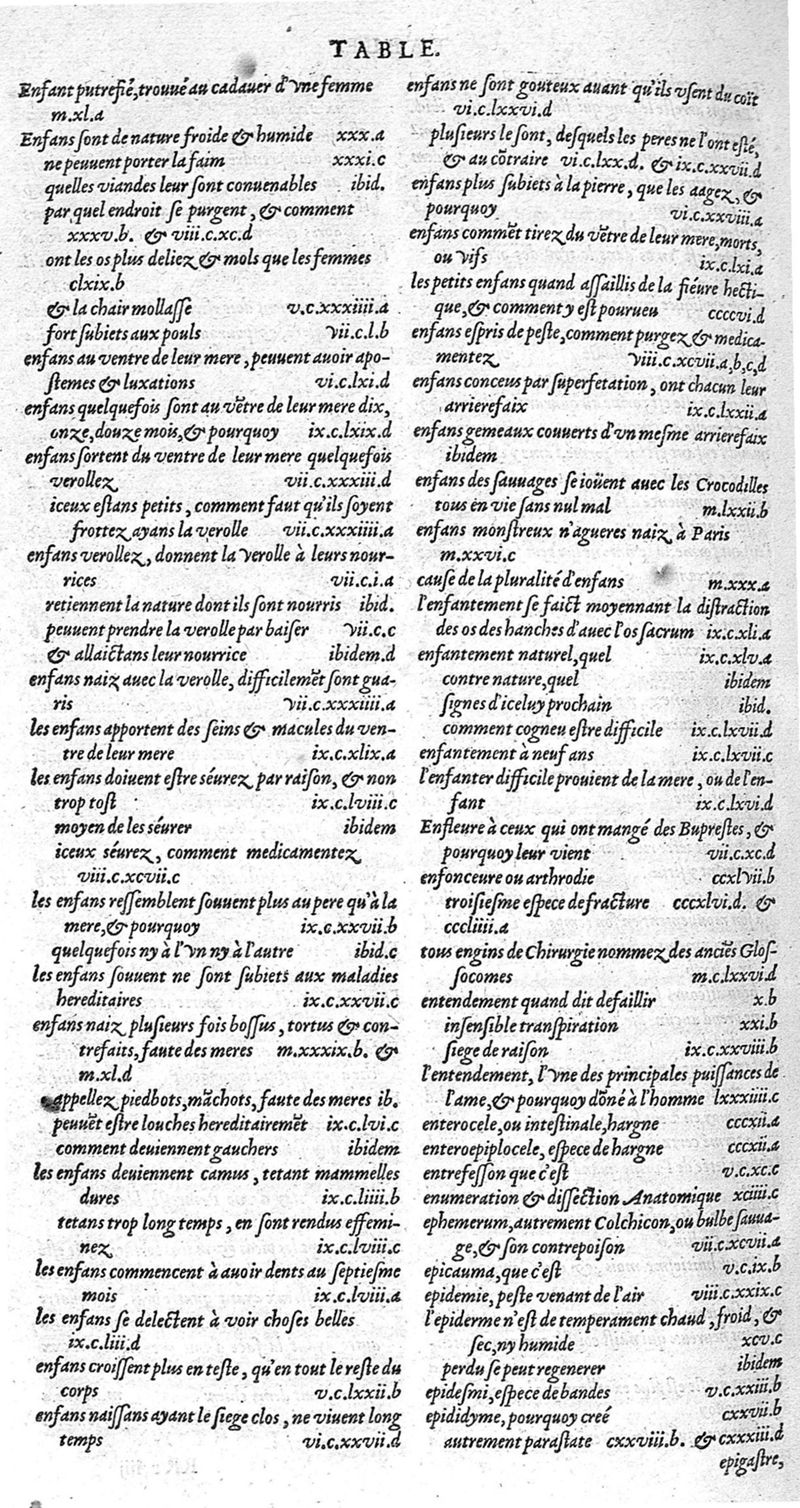 TABLE.
Enfant putrefié, trouué au cadauer d'vne femme
m.xl.a
Enfans sont de nature froide & humide xxx.a
ne peuuent porter la faim xxxi.c
quelles viandes leur sont conuenables ibid.
par quel endroit se purgent, & comment
xxxv.b. & viii.c.xc.d
ont les os plus deliez & mols que les femmes
clxix.b
& la chair mollasse v.c.xxxiiii.a
fort subiets aux pouls vii.c.l.b
enfans au ventre de leur mere, peuuent auoir apo-
stemes & luxations vi.c.lxi.d
enfans quelquefois sont au vẽtre de leur mere dix,
onze, douze mois, & pourquoy ix.c.lxix.d
enfans sortent du ventre de leur mere quelquefois
verollez vii.c.xxxiii.d
iceux estans petits, comment faut qu'ils soyent
frottez ayans la verolle vii.c.xxxiiii.a
enfans verollez, donnent la verolle à leurs nour-
rices vii.c.i.a
retiennent la nature dont ils sont nourris ibid.
peuuent prendre la verolle par baiser vii.c.c
& allaictans leur nourrice ibidem.d
enfans naiz auec la verolle, difficilemẽt sont gua-
ris vii.c.xxxiiii.a
les enfans apportent des seins & macules du ven-
tre de leur mere ix.c.xlix.a
les enfans doiuent estre séurez par raison, & non
trop tost ix.c.lviii.c
moyen de les séurer ibidem
iceux séurez, comment medicamentez
viii.c.xcvii.c
les enfans ressemblent souuent plus au pere qu'à la
mere, & pourquoy ix.c.xxvii.b
quelquefois ny à l'vn ny à l'autre ibid.c
les enfans souuent ne sont subiets aux maladies
hereditaires ix.c.xxvii.c
enfans naiz plusieurs fois bossus, tortus & con-
trefaits, faute des meres m.xxxix.b. &
m.xl.d
appellez piedbots, mãchots, faute des meres ib.
peuuẽt estre louches hereditairemẽt ix.c.lvi.c
comment deuiennent gauchers ibidem
les enfans deuiennent camus, tetant mammelles
dures ix.c.liiii.b
tetans trop long temps, en sont rendus effemi-
nez ix.c.lviii.c
les enfans commencent à auoir dents au septiesme
mois ix.c.lviii.a
les enfans se delectent à voir choses belles
ix.c.liii.d
enfans croissent plus en teste, qu'en tout le reste du
corps v.c.lxxii.b
enfans naissans ayant le siege clos, ne viuent long
temps vi.c.xxvii.d
enfans ne sont gouteux auant qu'ils vsent du coït
vi.c.lxxvi.d
plusieurs le sont, desquels les peres ne l'ont esté,
& au cõtraire vi.c.lxx.d. & ix.c.xxvii.d
enfans plus subiets à la pierre, que les aagez, &
pourquoy vi.c.xxviii.a
enfans commẽt tirez du vẽtre de leur mere, morts,
ou vifs ix.c.lxi.a
les petits enfans quand assaillis de la fiéure hecti-
que, & comment y est pourueu ccccvi.d
enfans espris de peste, comment purgez & medica-
mentez viii.c.xcvii.a,b,c,d
enfans conceus par superfetation, ont chacun leur
arrierefaix ix.c.lxxii.a
enfans gemeaux couuerts d'vn mesme arrierefaix
ibidem
enfans des sauuages se ioüent auec les Crocodilles
tous en vie sans nul mal m.lxxii.b
enfans monstreux n'agueres naiz à Paris
m.xxvi.c
cause de la pluralité d'enfans m.xxx.a
l'enfantement se faict moyennant la distraction
des os des hanches d'auec l'os sacrum ix.c.xli.a
enfantement naturel, quel ix.c.xlv.a
contre nature, quel ibidem
signes d'iceluy prochain ibid.
comment cogneu estre difficile ix.c.lxvii.d
enfantement à neuf ans ix.c.lxvii.c
l'enfanter difficile prouient de la mere, ou de l'en-
fant ix.c.lxvi.d
Enfleure à ceux qui ont mangé des Buprestes, &
pourquoy leur vient vii.c.xc.d
enfonceure ou arthrodie ccxlvii.b
troisiesme espece de fracture cccxlvi.d. &
cccliiii.a
tous engins de Chirurgie nommez des anciẽs Glos-
socomes m.c.lxxvi.d
entendement quand dit defaillir x.b
insensible transpiration xxi.b
siege de raison ix.c.xxviii.b
l'entendement, l'vne des principales puissances de
l'ame, & pourquoy dõné à l'homme lxxxiiii.c
enterocele, ou intestinale, hargne cccxii.a
enteroepiplocele, espece de hargne cccxii.a
entrefesson que c'est v.c.xc.c
enumeration & dissection Anatomique xciiii.c
ephemerum, autrement Colchicon, ou bulbe sauua-
ge, & son contrepoison vii.c.xcvii.a
epicauma, que c'est v.c.ix.b
epidemie, peste venant de l'air viii.c.xxix.c
l'epiderme n'est de temperament chaud, froid, &
sec, ny humide xcv.c
perdu se peut regenerer ibidem
epidesmi, espece de bandes v.c.xxiii.b
epididyme, pourquoy creé cxxvii.b
autrement parastate cxxviii.b. & cxxxiii.d
epigastre,